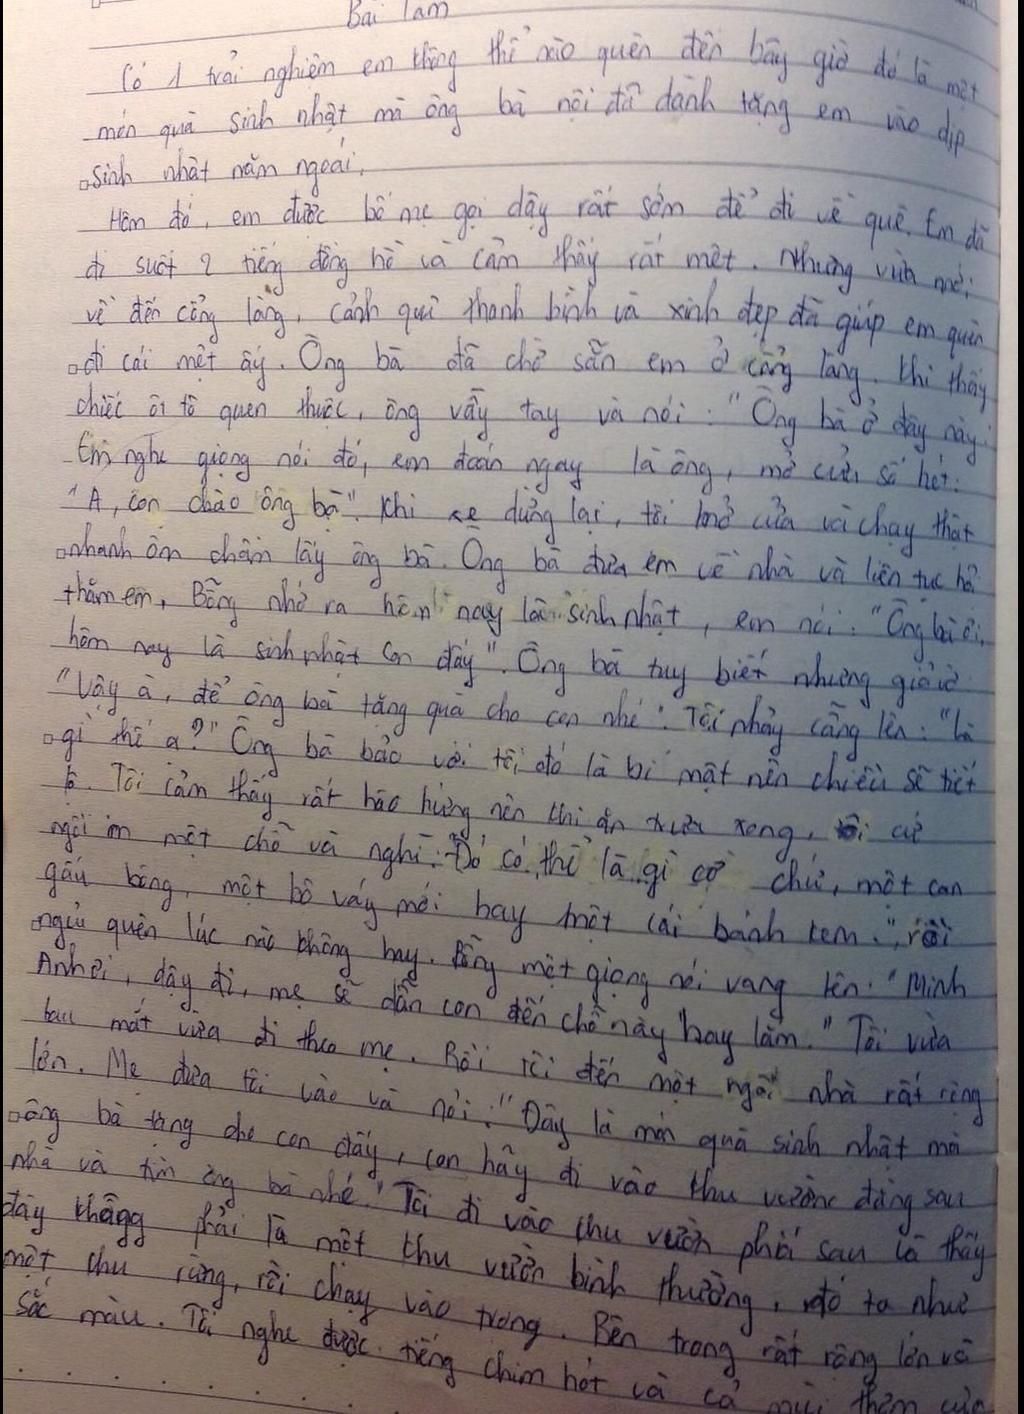 Bài làm
Có 1 trải nghiệm em không thể nào quên đến bây giờ đó là một
món quà sinh nhật mà ông bà nội đã dành tặng em vào dịp
sinh nhật năm ngoái.
Hôm đó, em được bố mẹ gọi dậy rất sớm để đi về quê. Em đã
đi suốt 2 tiếng đồng hồ và cảm thấy rất mệt. Nhưng vừa mới
về đến cổng làng, cảnh quê thanh bình và xinh đẹp đã giúp em quên
đi cái mệt ấy. Ông bà đã chờ sẵn em ở cổng làng. Khi thấy
chiếc ôt tô quen thuộc, ông vẫy tay và nói: "Ông bà ở đây này.
Em nghe giọng nói đó, em đoán ngay là ông, mở cửa sổ hét:
"A, con chào ông bà". Khi xe dừng lại, tôi mở cửa và chạy thật
nhanh ôm chầm lấy ông bà. Ông bà đưa em về nhà và liên tục hỏi
thăm em, Bỗng nhớ ra hôm nay là sinh nhật, em nói: "Ông bà ơi,
hôm nay là sinh nhật con đấy". Ông bà tuy biết nhưng giả vờ
"Vậy à, để ông bà tặng quà cho con nhé". Tôi nhảy cẫng lên: "Là
gì thế ạ?" Ông bà bảo với tôi đó là bí mật nên chiều sẽ tiết
lộ. Tôi cảm thấy rất hào hứng nên khi ăn trưa xong, tôi cứ
ngồi im một chỗ và nghĩ: Đó có thể là gì cơ chứ, một con
gấu bông, một bộ váy mới hay một cái bánh kem.", rồi
ngủ quên lúc nào không hay. Bỗng một giọng nói vang lên: "Minh
Anh ơi, dậy đi, mẹ sẽ dẫn con đến chỗ này hay lắm." Tôi vừa
mắt vừa đi theo mẹ. Rồi tôi đến một ngôi nhà rất rộng
lớn. Mẹ đưa tôi vào và nói: "Đây là món quà sinh nhật mà
ông bà tặng cho con đấy, con hãy đi vào khu vườn đằng sau
nhà và tìm ông bà nhé." Tôi đi vào khu vườn phía sau là thấy
đây không phải là một khu vườn bình thường, nó to như
một khu rừng, rồi chạy vào trong. Bên trong rất rộng lớn và
sắc màu. Tôi nghe được tiếng chim hót và cả mùi thơm của